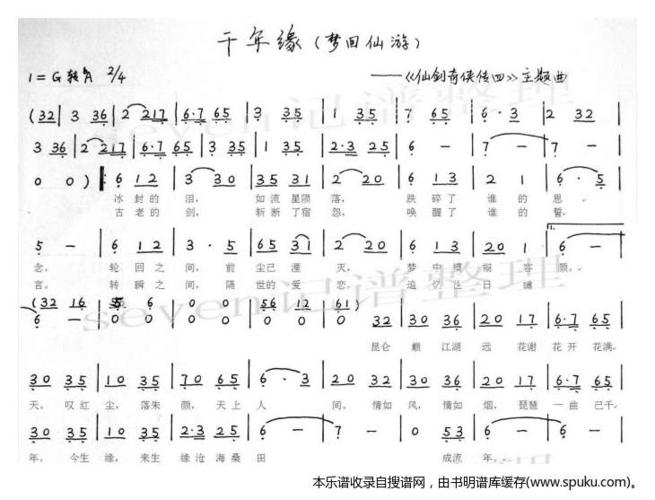 千年缘(梦回仙游)
1=G转A 2/4 ——《仙剑奇侠传四》主题曲
(32 | 3 36 | 2 217 | 6·7 65 | 3 35 | 1 35 | 7 65 | 6·3 | 2 32 |
3 36 | 2 217 | 6·7 65 | 3 35 | 1 35 | 2·3 25 | 6 - | 7 - | 7 - |
0 0) |: 6 12 | 3 30 | 35 31 | 2 20 | 6 13 | 2 1 | 6·5 |
冰封的 泪, 如流星陨 落, 跌碎了 谁的 思
古老的 剑, 斩断了宿 怨, 唤醒了 谁的 誓
5 - | 6 12 | 3·5 | 65 31 | 2 20 | 6 13 | 20 1 | 6 - |
念, 轮回之 间,前 尘已湮 灭, 梦中模 糊容 颜。
言, 转瞬之 间,隔 世的爱 恋, 追忆往日缠
(32 16 5 6 0 0 56 12 61)
6 - 0 0 0 0 0 0 | 32 | 30 36 | 20 17 | 6·7 65 |
昆仑 巅 江湖 远 花谢 花开 花满
30 35 | 10 35 | 70 65 | 6·3 | 20 32 | 30 36 | 20 17 | 6·7 65 |
天, 叹红 尘, 落朱 颜,天上 人 间, 情如 风,情如 烟, 琵琶 一曲 已千
30 35 | 10 35 | 20 25 | 6 - | 7 - | 0 53 | 6 - | 6 - |
年, 今生 缘,来生 缘 沧海 桑 田 成流 年。
seven记谱整理
seven记谱整理
本乐谱收录自搜谱网,由书明谱库缓存(www.spuku.com)。